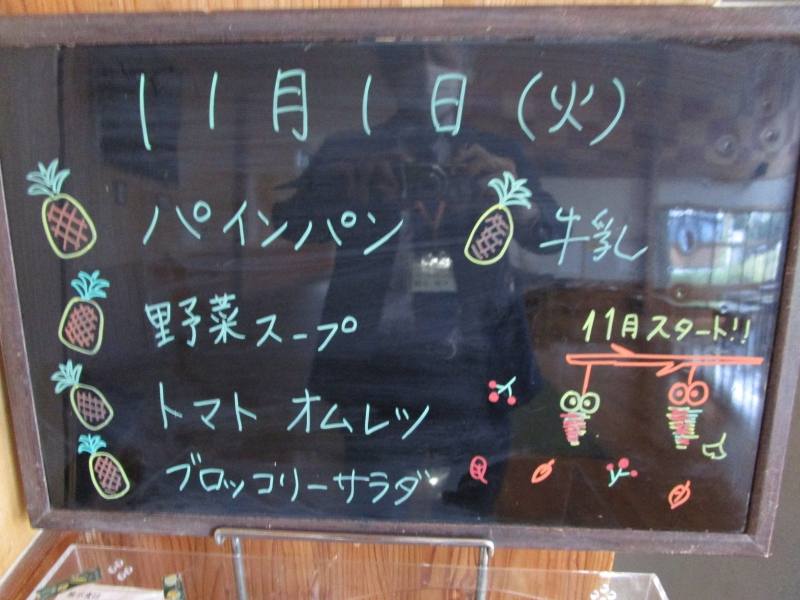 11月1日(火)
パインパン
牛乳
野菜スープ
11月スタート!!
トマト オムレツ
ブロッコリーサラダ